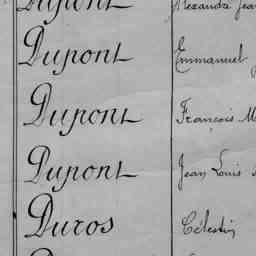 Dupont Alexandre Jean
Dupont Emmanuel
Dupont François M
Dupont Jean Louis
Duros Célestin